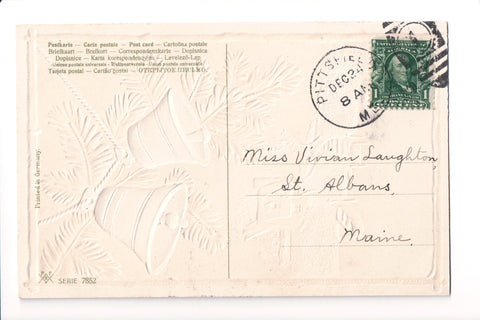 Postkarte – Carte postale – Post card – Cartolina postale
Briefkaart – Brefkort – Brevkort – Dopisnice
Dopisnica – Karta korespondencyjna – Levelező-Lap
Union postale universelle – Weltpostverein
Tarjeta postal – Cartão postal – ОТКРЫТОЕ ПИСЬМО.
PITTSFIE
DEC 24
8 AM
ME
Miss Vivian Laughton,
St. Albans,
Maine.
Printed in Germany.
SERIE 7862